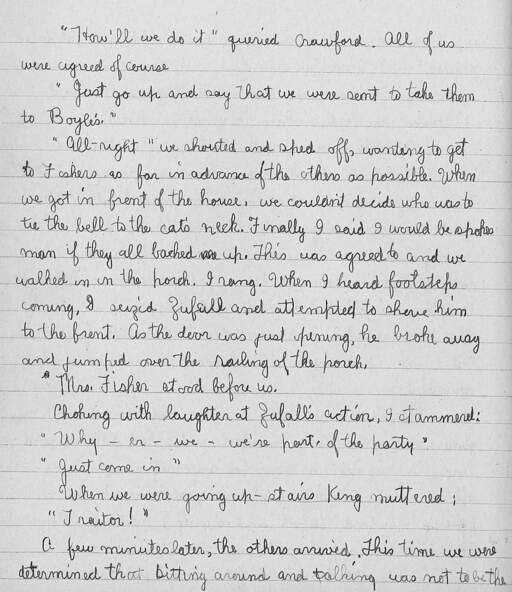 "How'll we do it" queried Crawford. All of us
were agreed of course
"Just go up and say that we were sent to take them
to Boyle's."
"All-right" we shouted and sped off, wanting to get
to Fishers as far in advance of the others as possible. When
we got in front of the house, we couldn't decide who was to
tie the bell to the cat's neck. Finally I said I would be spokes
man if they all backed me up. This was agreed to and we
walked in in the porch. I rang. When I heard footsteps
coming, I seized Zufall and attempted to shove him
to the front. As the door was just opening, he broke away
and jumped over the railing of the porch.
Mrs. Fisher stood before us.
Choking with laughter at Zufall's action, I stammered:
"Why - er - we - we're part, of the party"
"Just come in"
When we were going up-stairs King muttered;
"Traitor!"
A few minutes later, the others arrived. This time we were
determined that sitting around and talking was not to be the